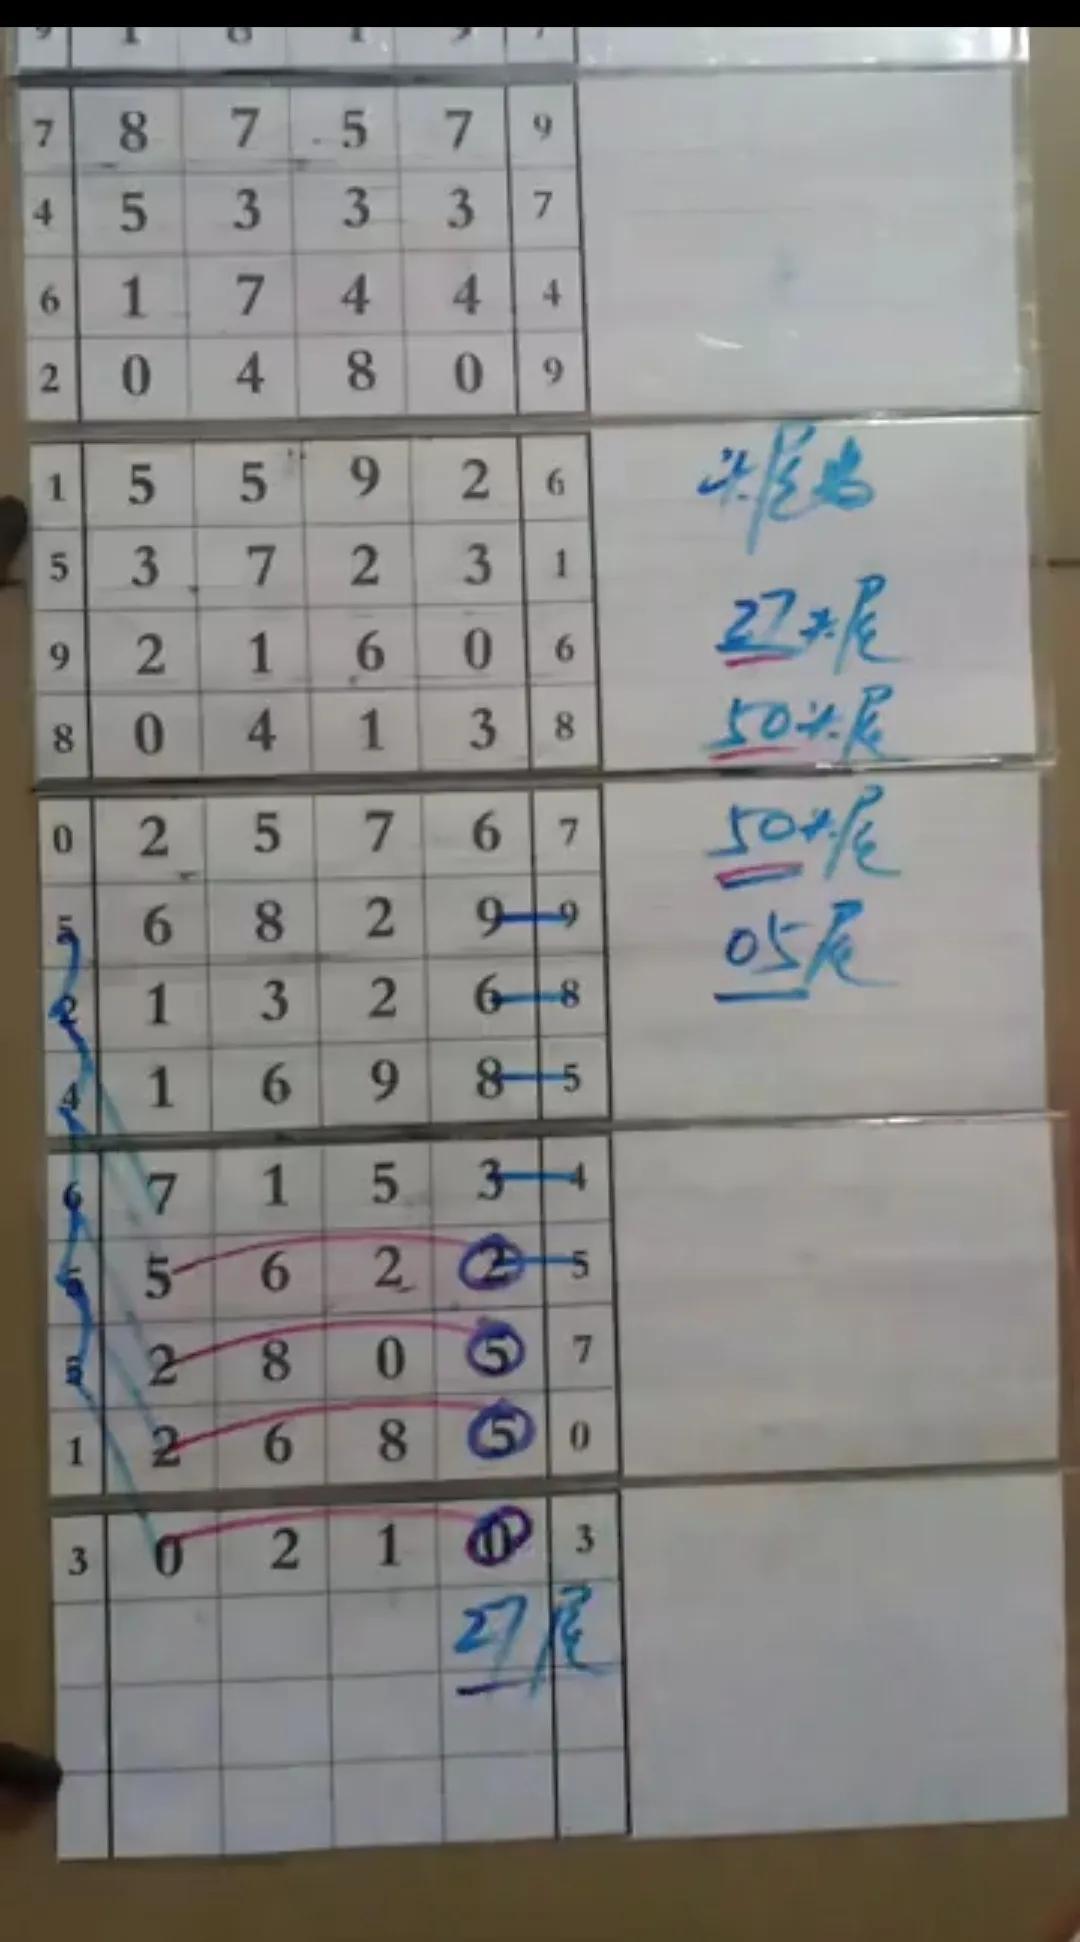 7 8 7 5 7 9
4 5 3 3 3 7
6 1 7 4 4 4
2 0 4 8 0 9
1 5 5 9 2 6
5 3 7 2 3 1
9 2 1 6 0 6
8 0 4 1 3 8
头尾为
27头尾
50头尾
0 2 5 7 6 7
5 6 8 2 9 9
2 1 3 2 6 8
4 1 6 9 8 5
50头尾
05尾
6 7 1 5 3 4
6 5 6 2 2 5
5 2 8 0 5 7
1 2 6 8 5 0
3 0 2 1 0 3
27尾